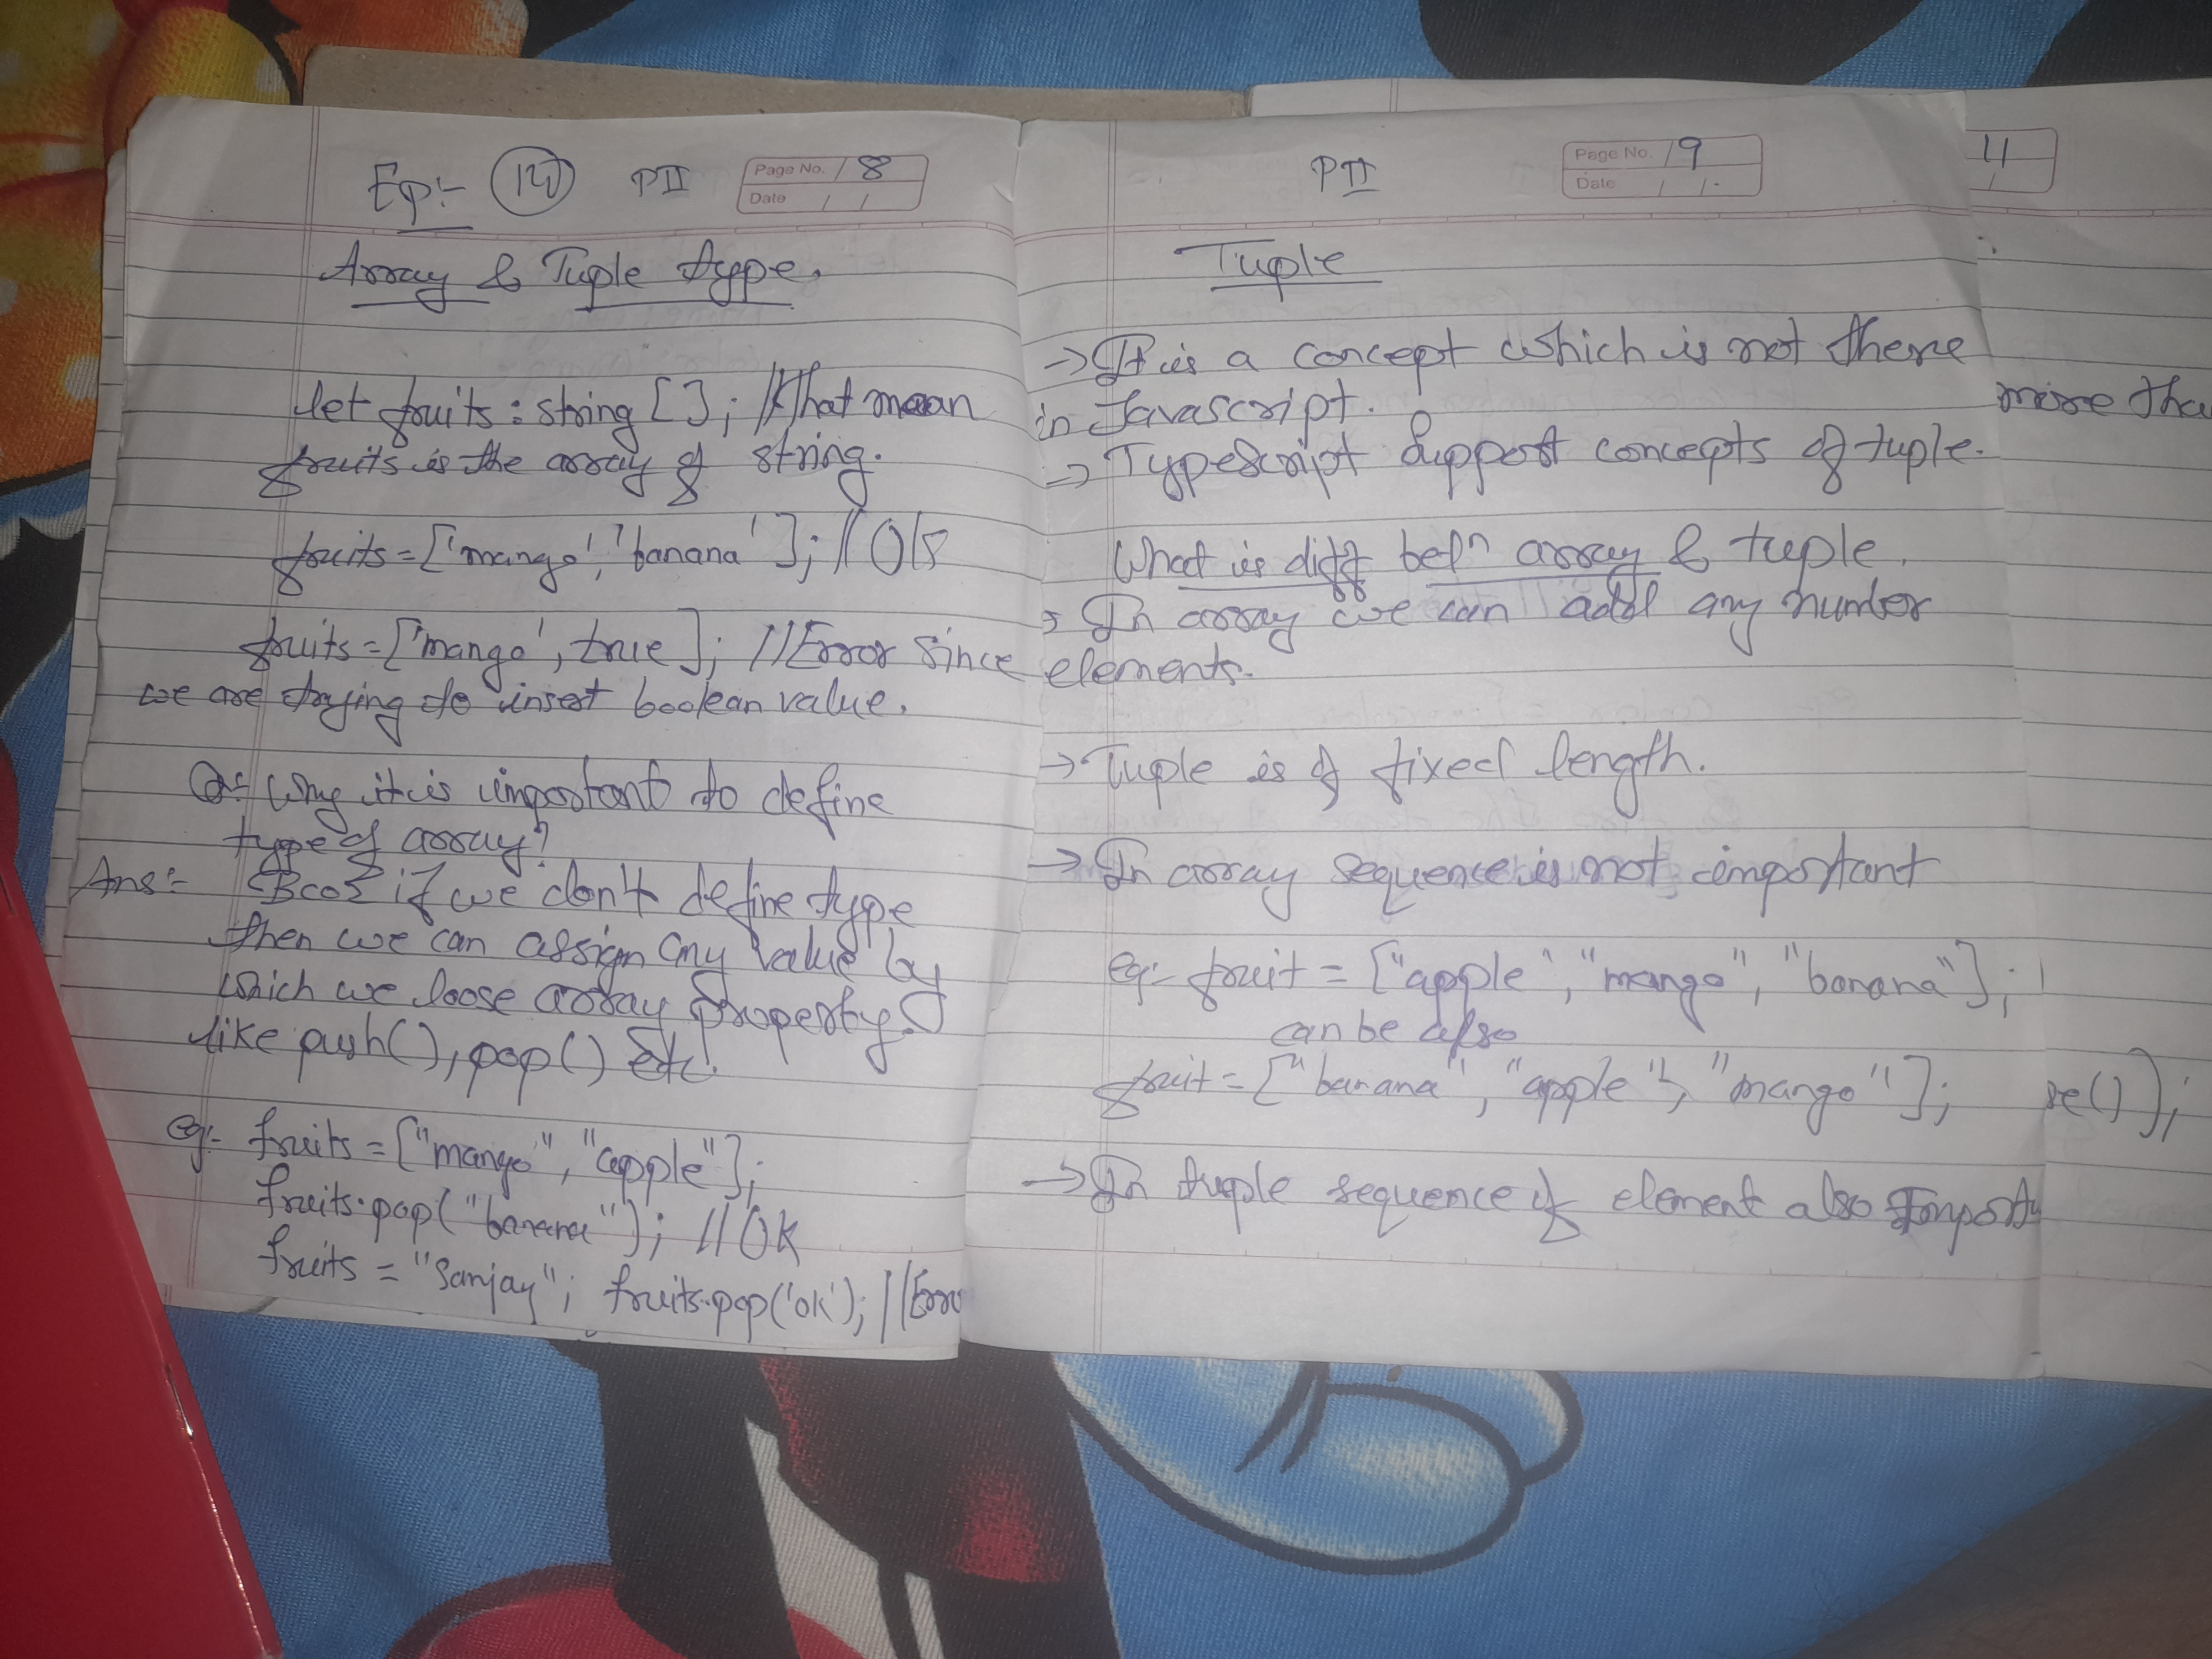 Eg:- (12) PII
Page No. 18
Date / /
Array & Tuple type.
let fruits : string [ ]; // that mean
fruits is the array of string.
fruits = ['mango', 'banana']; // Ok
fruits = ['mango', true]; // Error since
we are trying to insert boolean value.
Q: Why it is important to define
type of array?
Ans:- Bcoz if we don't define type
then we can assign any value by
which we loose array property
like push(), pop() etc.
eg:- fruits = ["mango", "apple"];
fruits.pop("banana"); // Ok
fruits = "Sanjay"; fruits.pop('ok'); // Error
PII
Page No. 19
Date / /
Tuple
→ It is a concept which is not there
in Javascript.
→ TypeScript support concepts of tuple.
What is diff betn array & tuple.
→ In array we can add any number
elements.
→ Tuple is of fixed length.
→ In array sequence is not important
eg:- fruit = ["apple", "mango", "banana"];
can be also
fruit = ["banana", "apple", "mango"];
→ In tuple sequence of element also
11
more
se();